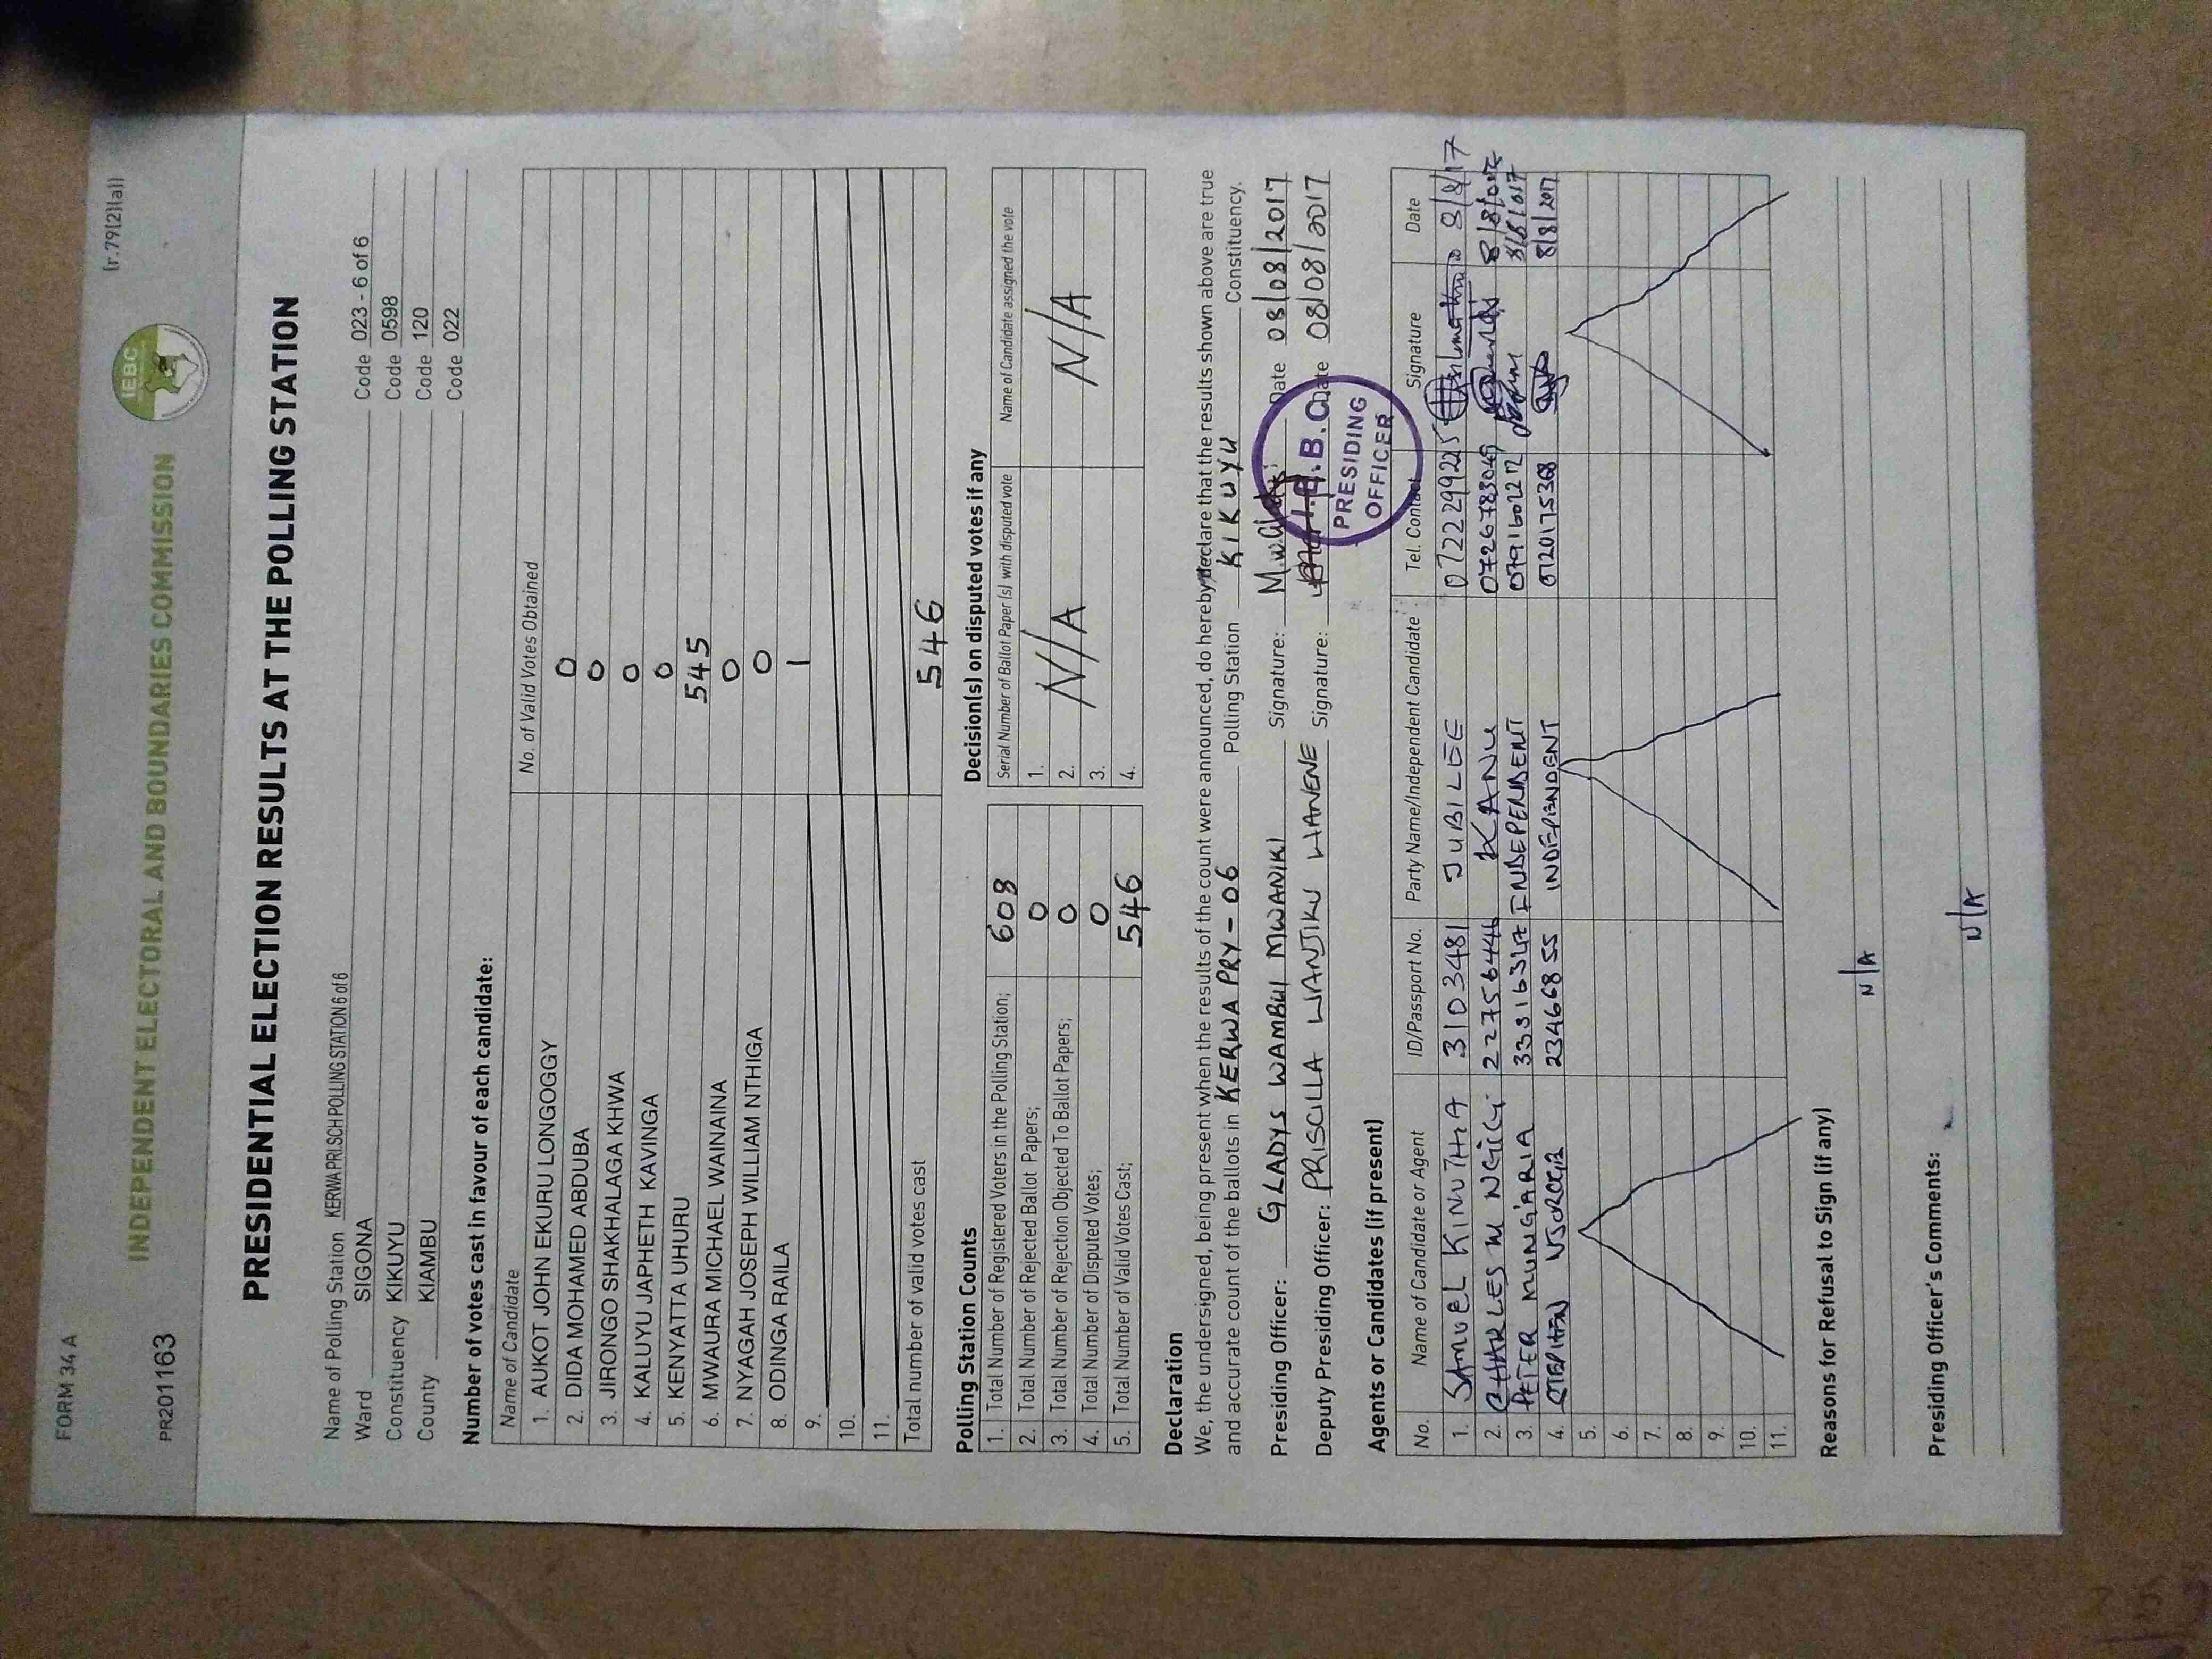 FORM 34 A
(r.79(2)(a))
IEBC
INDEPENDENT ELECTORAL AND BOUNDARIES COMMISSION
PR201163
PRESIDENTIAL ELECTION RESULTS AT THE POLLING STATION
Name of Polling Station KERWA PRI.SCH POLLING STATION 6 of 6 Code 023 - 6 of 6
Ward SIGONA Code 0598
Constituency KIKUYU Code 120
County KIAMBU Code 022
Number of votes cast in favour of each candidate:
Name of Candidate No. of Valid Votes Obtained
1. AUKOT JOHN EKURU LONGOGGY 0
2. DIDA MOHAMED ABDUBA 0
3. JIRONGO SHAKHALAGA KHWA 0
4. KALUYU JAPHETH KAVINGA 0
5. KENYATTA UHURU 545
6. MWAURA MICHAEL WAINAINA 0
7. NYAGAH JOSEPH WILLIAM NTHIGA 0
8. ODINGA RAILA 1
9.
10.
11.
Total number of valid votes cast 546
Polling Station Counts
1. Total Number of Registered Voters in the Polling Station; 608
2. Total Number of Rejected Ballot Papers; 0
3. Total Number of Rejection Objected To Ballot Papers; 0
4. Total Number of Disputed Votes; 0
5. Total Number of Valid Votes Cast; 546
Decision(s) on disputed votes if any
Serial Number of Ballot Paper (s) with disputed vote Name of Candidate assigned the vote
1.
2. N/A N/A
3.
4.
Declaration
We, the undersigned, being present when the results of the count were announced, do hereby declare that the results shown above are true
and accurate count of the ballots in KERWA PRY - 06 Polling Station KIKUYU Constituency.
Presiding Officer: GLADYS WAMBUI MWANIKI Signature: Date 08/08/2017
Deputy Presiding Officer: PRISCILLA WANJIKU WANENE Signature: Date 08/08/2017
I.E.B.C
PRESIDING
OFFICER
Agents or Candidates (if present)
No. Name of Candidate or Agent ID/Passport No. Party Name/Independent Candidate Tel. Contact Signature Date
1. SAMUEL KINUTHIA 3103481 JUBILEE 0722299225 8/8/17
2. CHARLES M NGIGI 22756446 KANU 0726783049
3. PETER MUNGARIA INDEPENDENT 8/8/017
4. 23466855 INDEPENDENT 0720175368 8/8/2017
5.
6.
7.
8.
9.
10.
11.
Reasons for Refusal to Sign (if any)
N/A
Presiding Officer's Comments:
N/A